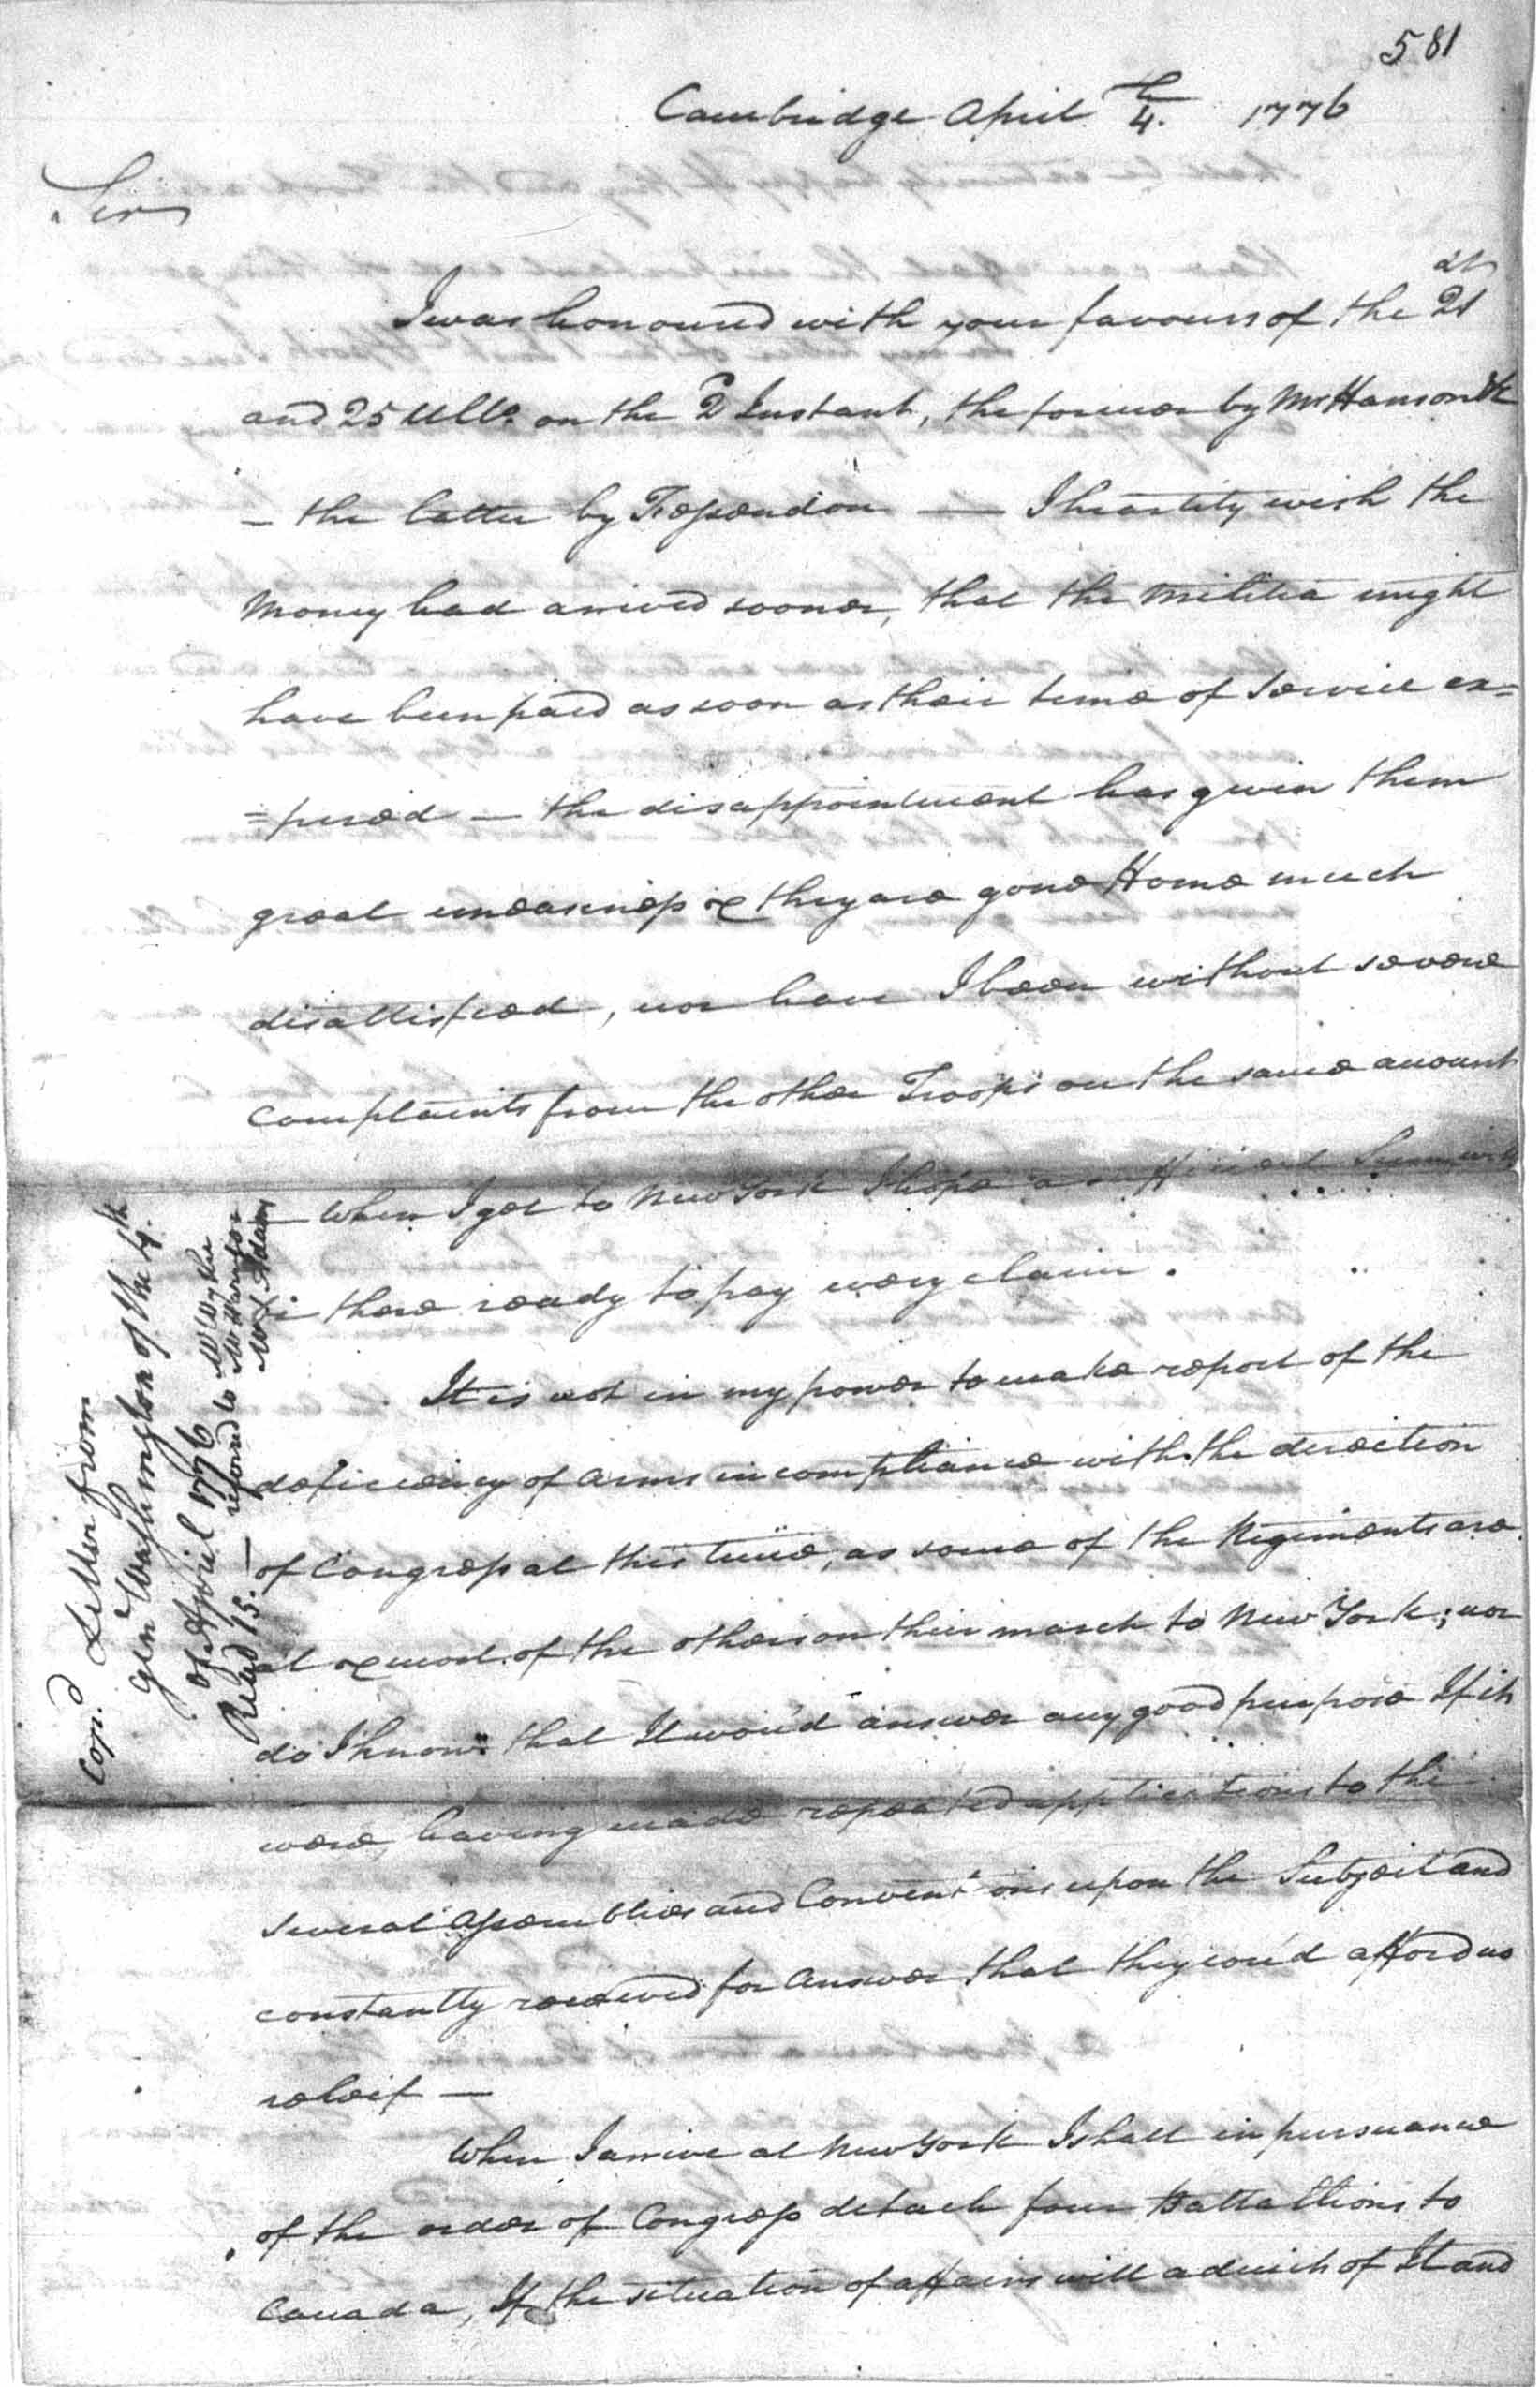 581
Cambridge April 4th 1776
Sir
I was honoured with your favours of the 21st
and 25 Ullo. on the 2d Instant, the former by Mr Hanson &c
— the latter by Fessendon — I heartily wish the
Money had arrived sooner, that the Militia might
have been paid as soon as their time of Service ex=
=pired — the disappointment has given them
great uneasiness & they are gone Home much
disattisfied, nor have I been without severe
complaints from the other Troops on the same account
— When I get to New York I hope a sufficient Sum will
be there ready to pay every claim.
It is not in my power to make report of the
deficiency of Arms in compliance with the direction
of Congress at this time, as some of the Regiments are
at & most of the others on their march to New York; nor
do I know that It wou'd answer any good purpose If it
were, having made repeated applications to the
several Assemblies and Conventions upon the Subject and
constantly received for Answer that they cou'd afford no
releif —
When I arrive at New York I shall in pursuance
of the order of Congress detach four Battallions to
Canada, If the situation of affairs will admit of It and
Cop.d Letter from
Gen Washington of the 4th.
of April 1776
Read 15. — referred to Mr Wythe
Mr Harrison
Mr J Adams